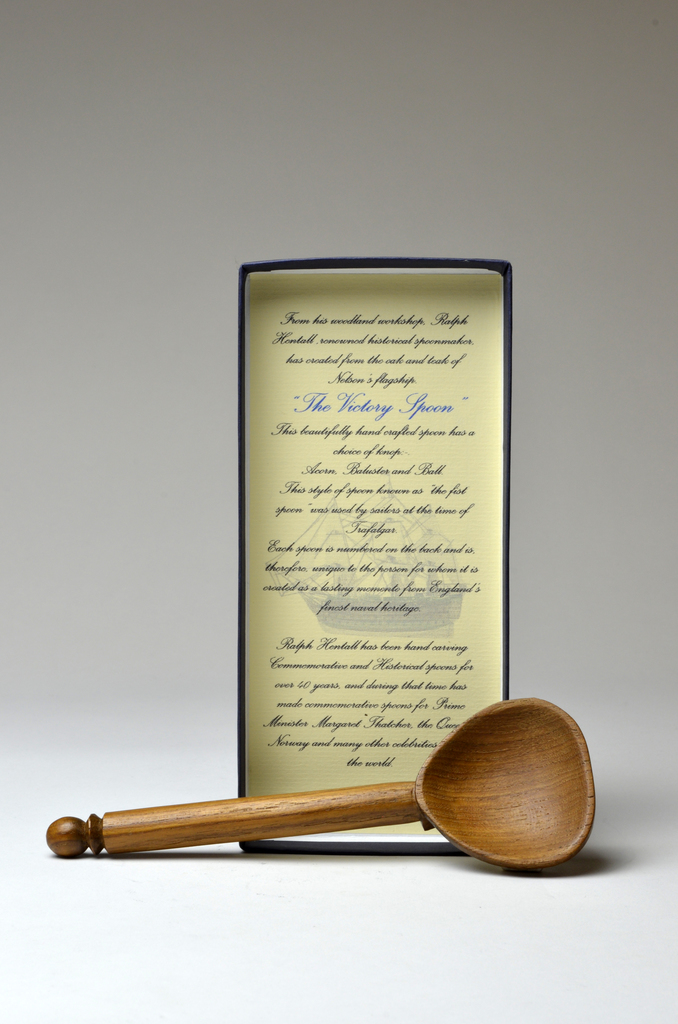 From his woodland workshop, Ralph
Hentall, renowned historical spoonmaker,
has created from the oak and teak of
Nelson's flagship.
"The Victory Spoon"
This beautifully hand crafted spoon has a
choice of knop:-
Acorn, Baluster and Ball.
This style of spoon known as "the fist
spoon" was used by sailors at the time of
Trafalgar.
Each spoon is numbered on the back and is,
therefore, unique to the person for whom it is
created as a lasting momento from England's
finest naval heritage.
Ralph Hentall has been hand carving
Commemorative and Historical spoons for
over 40 years, and during that time has
made commemorative spoons for Prime
Minister Margaret Thatcher, the
Norway and many other celebrities
the world.